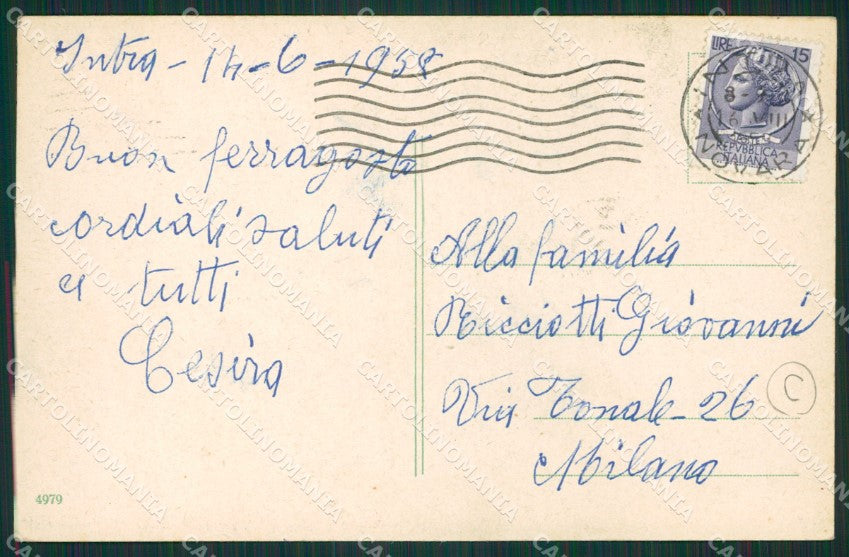 Intra - 14-6-1958
Buon ferragosto
cordiali saluti
a tutti
Cesira
Alla familia
Ricciotti Giovanni
Via Tonale - 26
Milano
C
4979
LIRE 15
POSTE
REPVBBLICA
ITALIANA
VIII
NOVARA
CARTOLINOMANIA